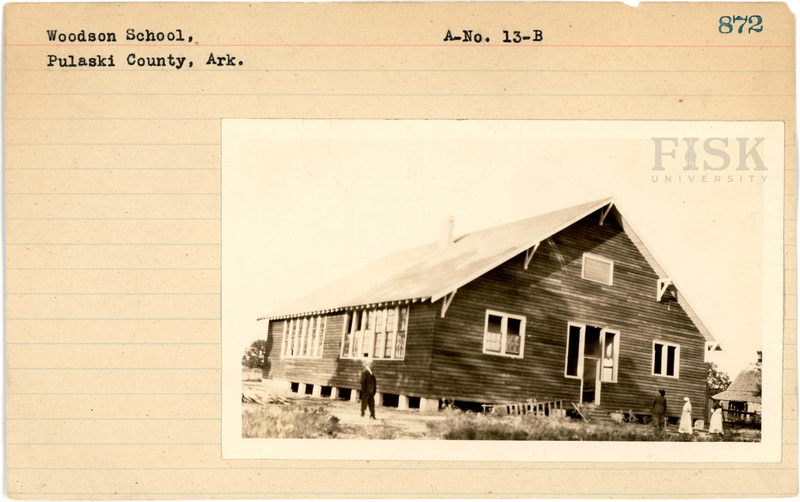 Woodson School,
Pulaski County, Ark.
A-No. 13-B
872
FISK
UNIVERSITY